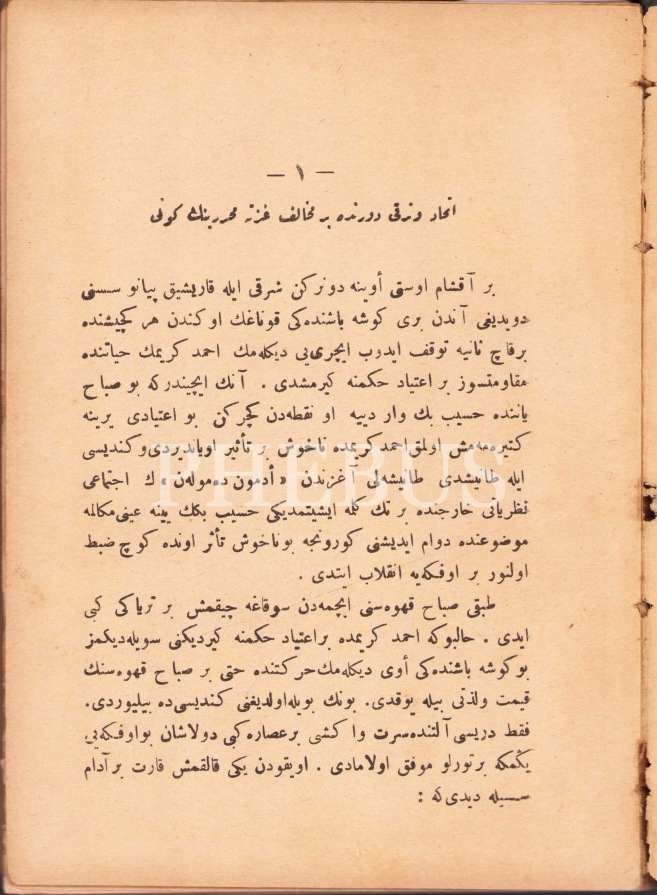 — ١ —
اتحاد وترقی دورنده بر مخالف غزته محررینك كونی
بر آقشام اوستی أوینه دونركن شرقی ایله قاریشیق پیانو سسنی
دویدیغی آندن بری كوشه باشنده‌كی قوناغك اوكندن هر كچیشنده
برقاچ ثانیه توقف ایدوب ایچری‌یی دیكله‌مك احمد كریمك حیاتنده
مقاومتسوز بر اعتیاد حكمنه كیرمشدی . آنك ایچیندركه بو صباح
یاننده حسیب بك وار دییه او نقطه‌دن كچركن بو اعتیادی یرینه
كتیره‌مه‌مش اولمق احمد كریمده ناخوش بر تأثیر اویاندیردی و كندیسی
ایله طانیشدی طانیشه‌لی آغزندن « أدمون ده‌موله‌ن » ك اجتماعی
نظریاتی خارجنده بر تك كلمه ایشیتمدیكی حسیب بكك یینه عینی مكالمه
موضوعنده دوام ایدیشنی كورونجه بو ناخوش تأثر اونده كوچ ضبط
اولنور بر اوفكه‌یه انقلاب ایتدی .
طبقی صباح قهوه‌سنی ایچمه‌دن سوقاغه چیقمش بر تریاكی كبی
ایدی . حالبوكه احمد كریمده بر اعتیاد حكمنه كیردیكنی سویله‌دیكمز
بو كوشه باشنده‌كی أوی دیكله‌مك حركتنده حتی بر صباح قهوه‌سنك
قیمت ولذتی بیله یوقدی. بونك بویله اولدیغنی كندیسی‌ده بیلیوردی.
فقط دریسی آلتنده سرت وا كشی بر عصاره كبی دولاشان بو اوفكه‌یی
یكمكه بر تورلو موفق اولامادی . اویقودن یكی قالقمش قارت بر آدام
سسیله دیدی كه :
PHEBUS